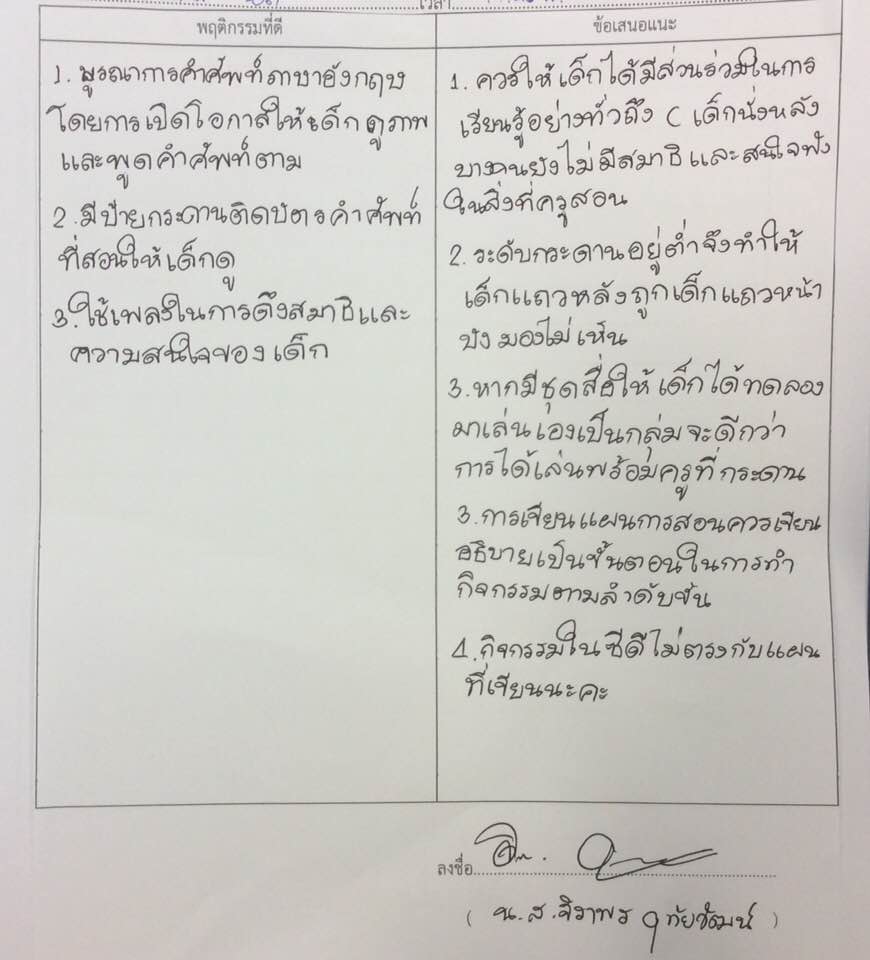 เวลา
พฤติกรรมที่ดี
1. บูรณาการคำศัพท์ภาษาอังกฤษ
โดยการเปิดโอกาสให้เด็กดูภาพ
และพูดคำศัพท์ตาม
2. มีป้ายกระดานติดบัตรคำศัพท์
ที่สอนให้เด็กดู
3. ใช้เพลงในการดึงสมาธิและ
ความสนใจของเด็ก
ข้อเสนอแนะ
1. ควรให้เด็กได้มีส่วนร่วมในการ
เรียนรู้อย่างทั่วถึง ( เด็กนั่งหลัง
บางคนยังไม่มีสมาธิและสนใจฟัง
ในสิ่งที่ครูสอน
2. ระดับกระดานอยู่ต่ำจึงทำให้
เด็กแถวหลังถูกเด็กแถวหน้า
บังมองไม่เห็น
3. หากมีชุดสื่อให้เด็กได้ทดลอง
มาเล่นเองเป็นกลุ่มจะดีกว่า
การได้เล่นพร้อมครูที่กระดาน
3. การเขียนแผนการสอนควรเขียน
อธิบายเป็นขั้นตอนในการทำ
กิจกรรมตามลำดับขั้น
4. กิจกรรมในซีดีไม่ตรงกับแผน
ที่เขียนนะคะ
ลงชื่อ
( น.ส.จิราพร ฤทัยวัฒน์ )